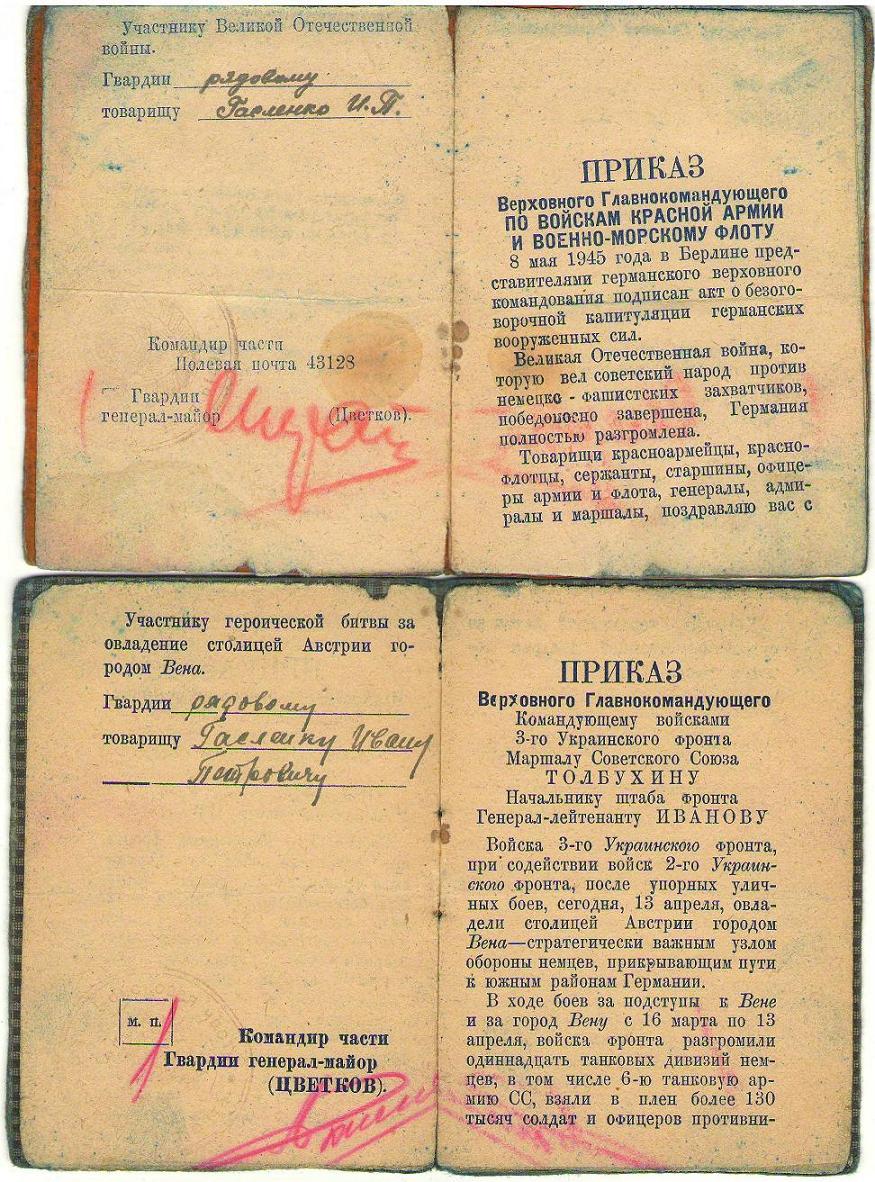 Участнику Великой Отечественной
войны.
Гвардии рядовому
товарищу Гасленко И.П.
Командир части
Полевая почта 43128
Гвардии
генерал-майор (Цветков).
ПРИКАЗ
Верховного Главнокомандующего
ПО ВОЙСКАМ КРАСНОЙ АРМИИ
И ВОЕННО-МОРСКОМУ ФЛОТУ
8 мая 1945 года в Берлине пред-
ставителями германского верховного
командования подписан акт о безого-
ворочной капитуляции германских
вооруженных сил.
Великая Отечественная война, ко-
торую вел советский народ против
немецко-фашистских захватчиков,
победоносно завершена, Германия
полностью разгромлена.
Товарищи красноармейцы, красно-
флотцы, сержанты, старшины, офице-
ры армии и флота, генералы, адми-
ралы и маршалы, поздравляю вас с
Участнику героической битвы за
овладение столицей Австрии го-
родом Вена.
Гвардии рядовому
товарищу Гасленку Ивану
Петровичу
м. п.
Командир части
Гвардии генерал-майор
(ЦВЕТКОВ).
ПРИКАЗ
Верховного Главнокомандующего
Командующему войсками
3-го Украинского фронта
Маршалу Советского Союза
ТОЛБУХИНУ
Начальнику штаба фронта
Генерал-лейтенанту ИВАНОВУ
Войска 3-го Украинского фронта,
при содействии войск 2-го Украин-
ского фронта, после упорных улич-
ных боев, сегодня, 13 апреля, овла-
дели столицей Австрии городом
Вена—стратегически важным узлом
обороны немцев, прикрывающим пути
к южным районам Германии.
В ходе боев за подступы к Вене
и за город Вену с 16 марта по 13
апреля, войска фронта разгромили
одиннадцать танковых дивизий нем-
цев, в том числе 6-ю танковую ар-
мию СС, взяли в плен более 130
тысяч солдат и офицеров противни-